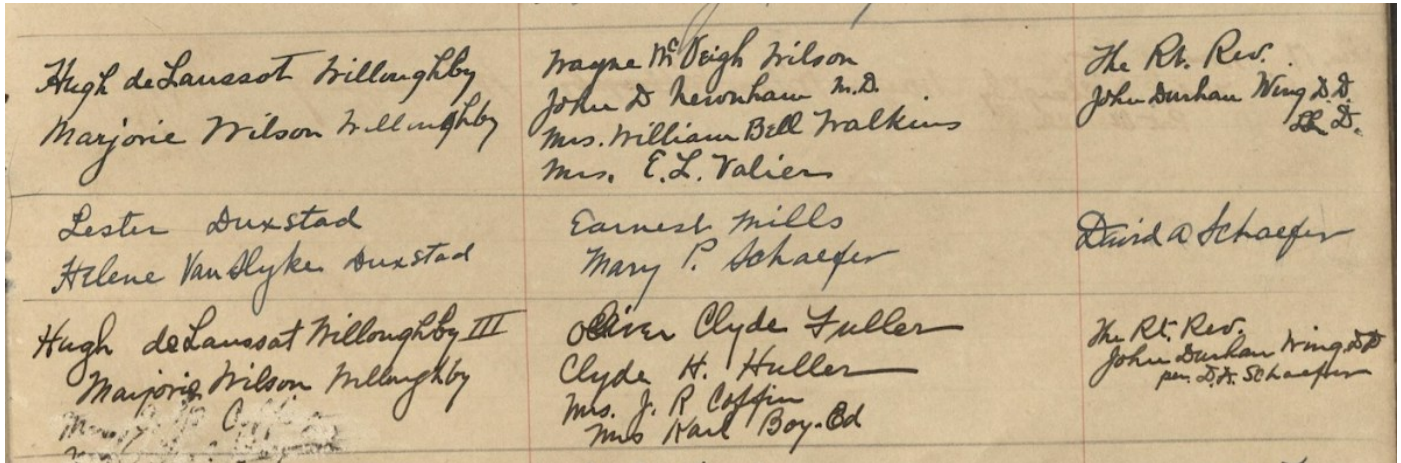 Hugh deLaussat Willoughby
Marjorie Wilson Willoughby
Wayne McVeigh Wilson
John D Newnham M.D.
Mrs. William Bell Watkins
Mrs. E.L. Valier
The Rt. Rev.
John Durham Wing D.D.
LL D.
Lester Duxstad
Helene VanSlyke Duxstad
Earnest Mills
Mary P. Schaefer
David A Schaefer
Hugh deLaussat Willoughby III
Marjorie Wilson Willoughby
Oliver Clyde Fuller
Clyde H. Huller
Mrs. J. R Coffin
Mrs Karl Boy-Ed
The Rt. Rev.
John Durham Wing DD
per. D.A. Schaefer